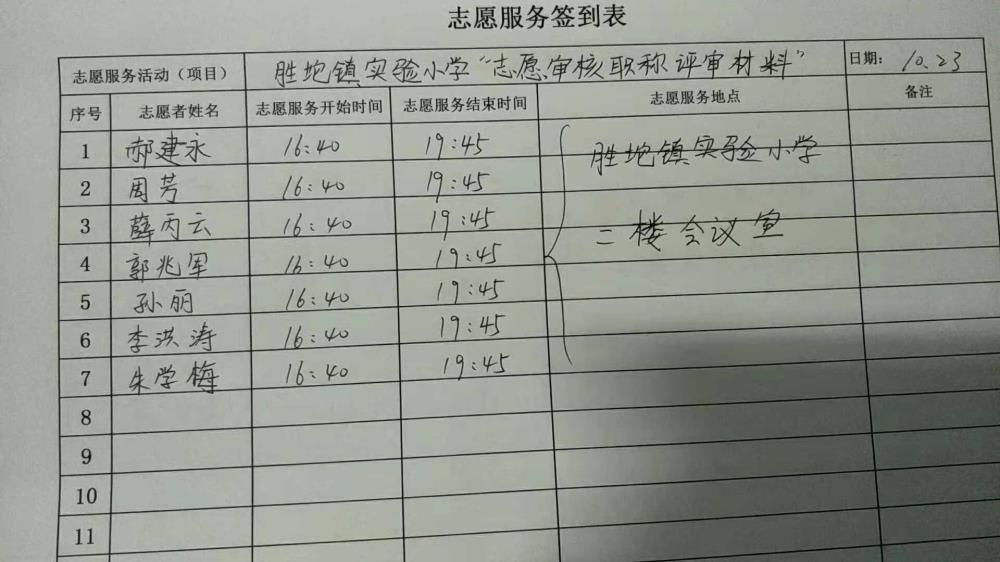 志愿服务签到表
志愿服务活动（项目） 胜坨镇实验小学“志愿审核职称评审材料” 日期： 10.23
序号 志愿者姓名 志愿服务开始时间 志愿服务结束时间 志愿服务地点 备注
1 郝建永 16:40 19:45 胜坨镇实验小学
2 周芳 16:40 19:45
3 薛丙云 16:40 19:45 二楼会议室
4 郭兆军 16:40 19:45
5 孙丽 16:40 19:45
6 李洪涛 16:40 19:45
7 朱学梅 16:40 19:45
8
9
10
11